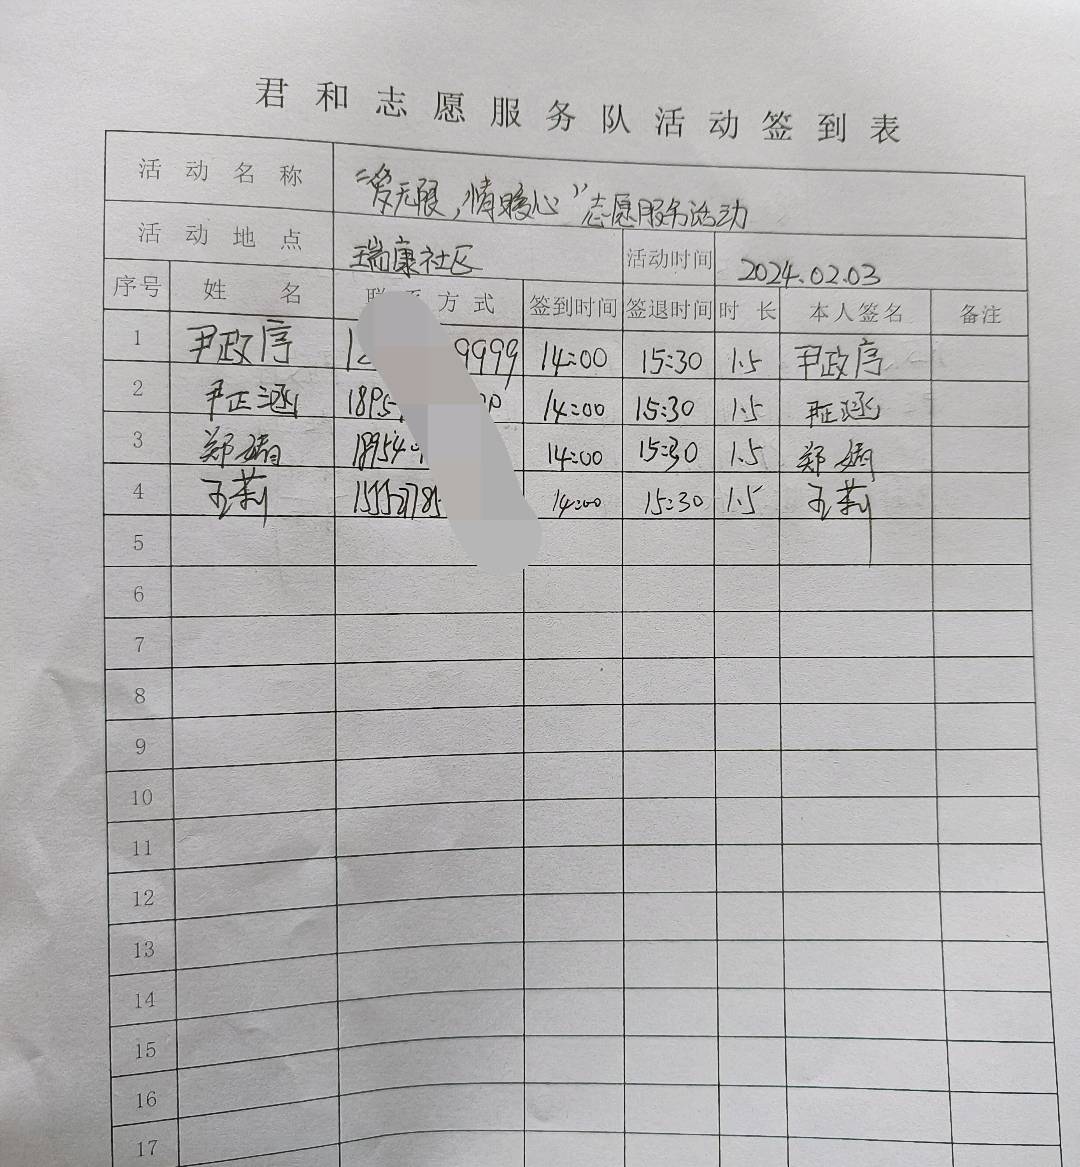 君和志愿服务队活动签到表
活动名称 “爱无限,情暖心”志愿服务活动
活动地点 瑞康社区 活动时间 2024.02.03
序号 姓名 方式 签到时间 签退时间 时长 本人签名 备注
1 尹政序 9999 14:00 15:30 1.5 尹政序
2 尹正涵 1895 14:00 15:30 1.5 尹正涵
3 郑娟 18954 14:00 15:30 1.5 郑娟
4 王莉 14:00 15:30 1.5 王莉
5
6
7
8
9
10
11
12
13
14
15
16
17